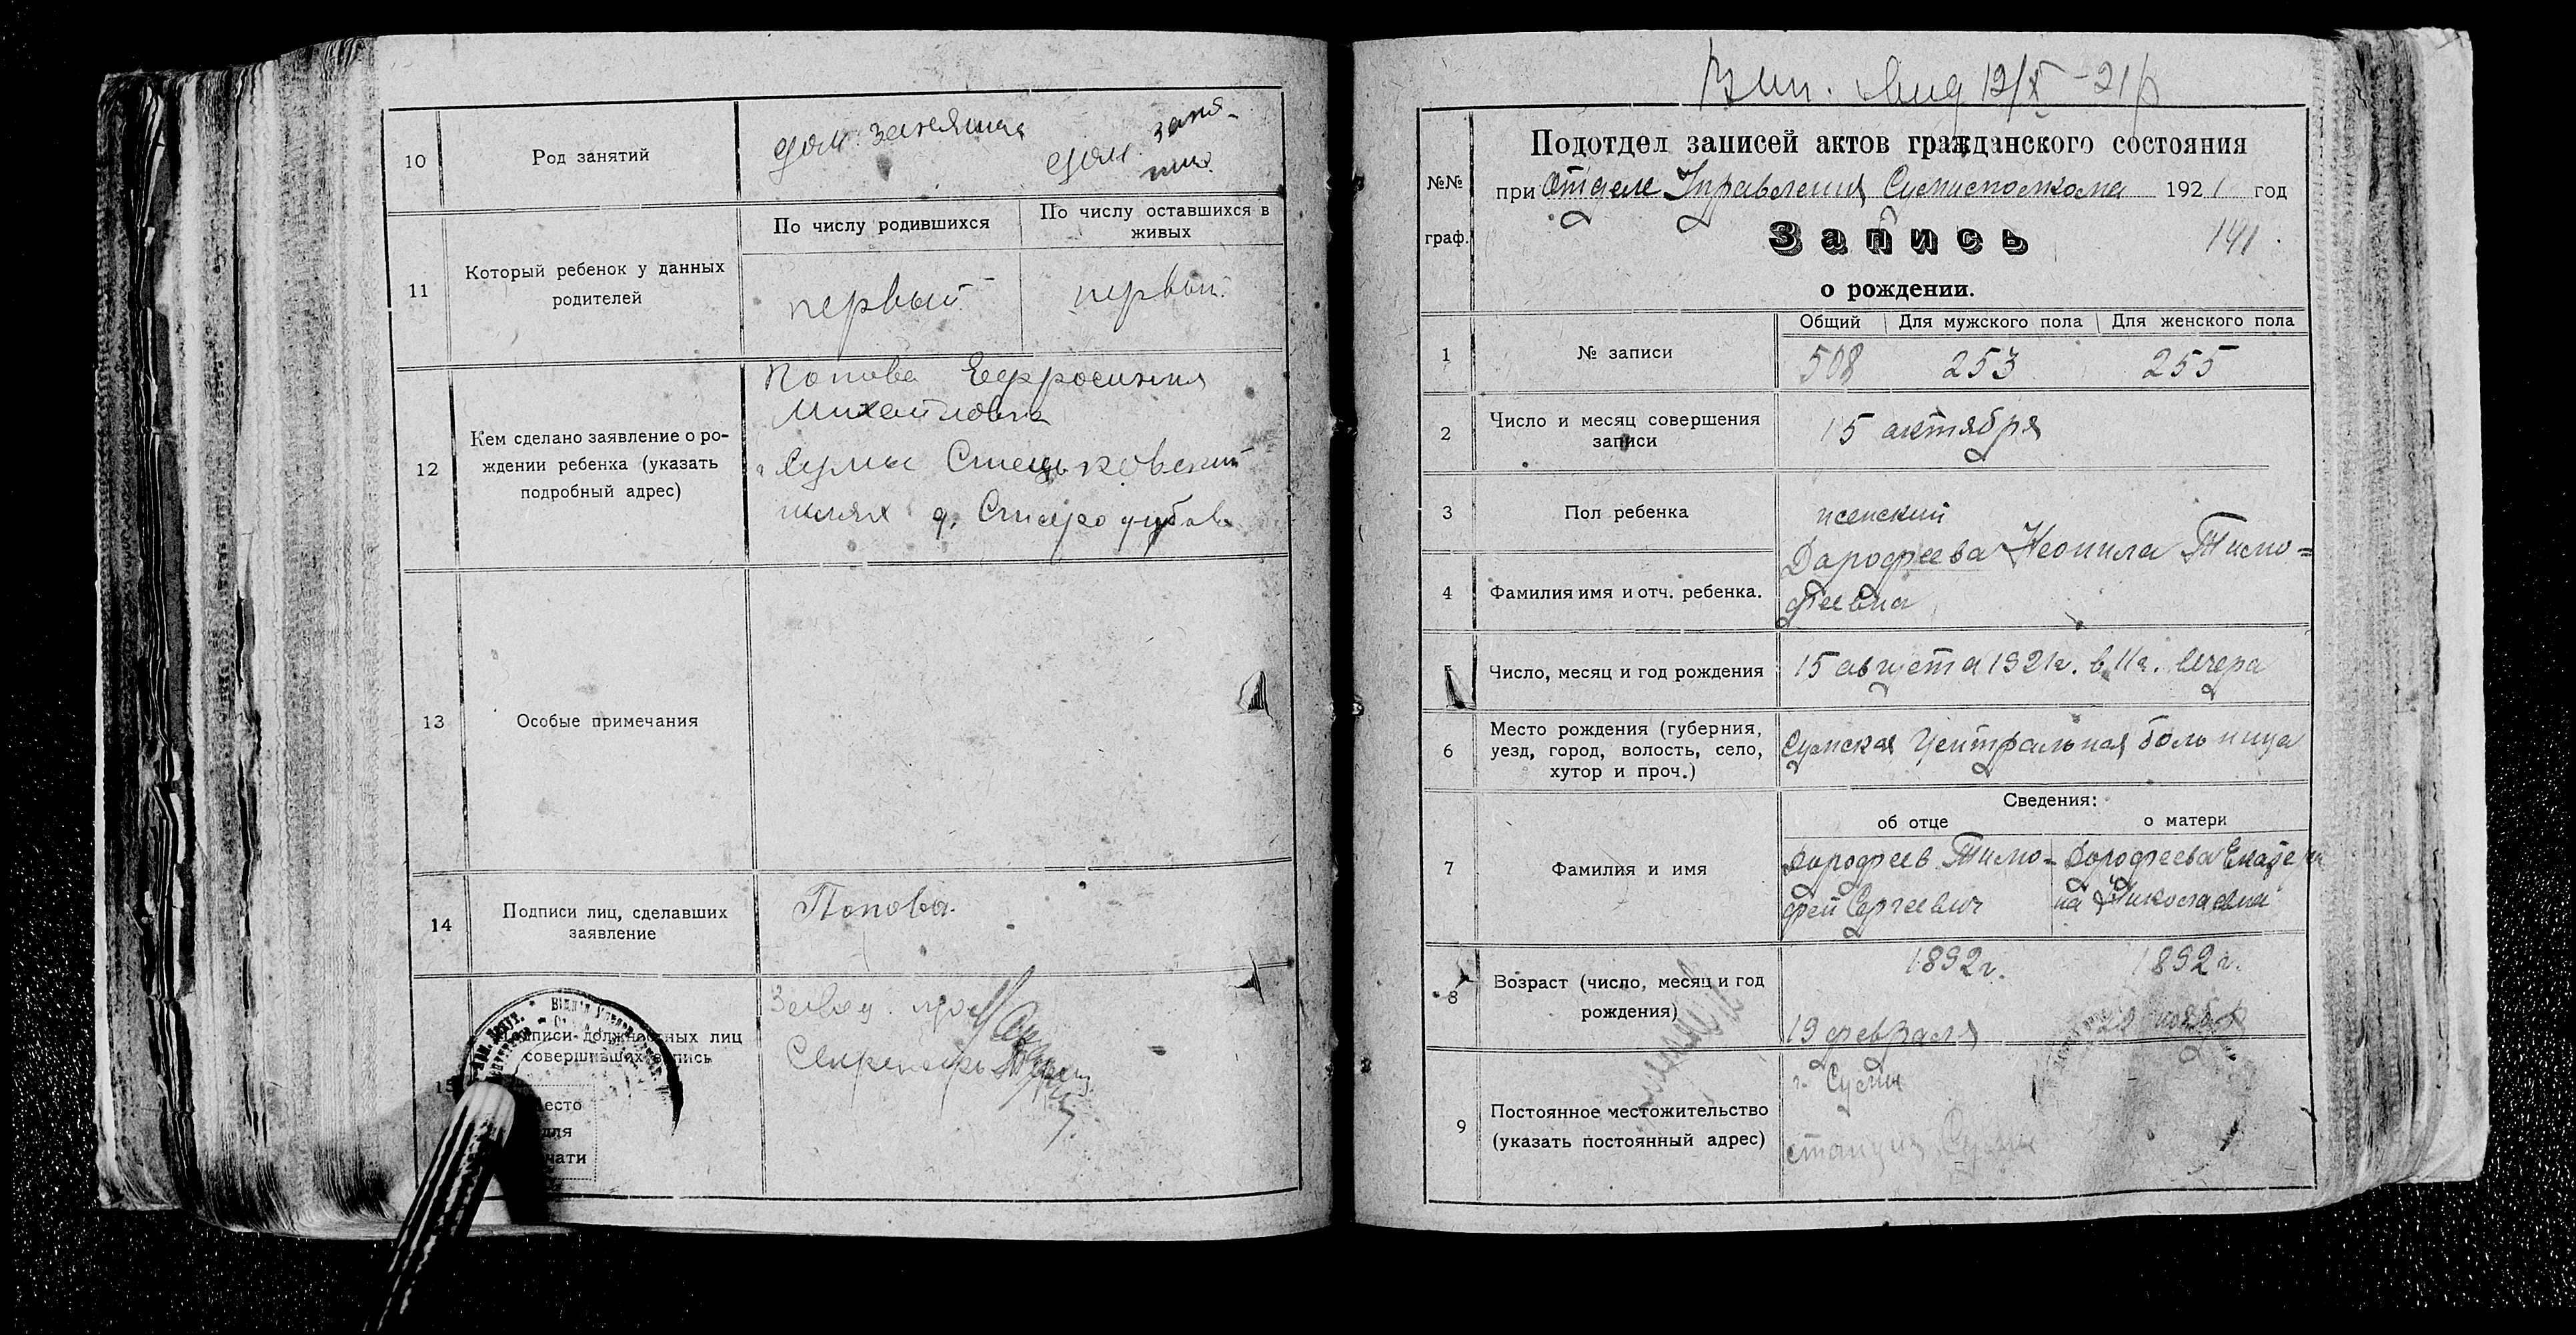 10
Род занятий
дом. занятия
дом. заня-
тия
11
Который ребенок у данных
родителей
По числу родившихся
По числу оставшихся в
живых
первый
первый
12
Кем сделано заявление о ро-
ждении ребенка (указать
подробный адрес)
Попова Ефросиния
Михайловна
Сумы Стецьковский
шлях д.
13
Особые примечания
14
Подписи лиц, сделавших
заявление
Попова.
15
Подписи должностных лиц
совершивших запись
Место
для
печати
Завед.
Секретарь
12/X -21 р
№№
граф.
Подотдел записей актов гражданского состояния
при Отделе Управления Сумисполкома 1921 год
Запись
141.
о рождении.
1
№ записи
Общий Для мужского пола Для женского пола
508 253 255
2
Число и месяц совершения
записи
15 октября
3
Пол ребенка
женский
4
Фамилия имя и отч. ребенка.
Дарофеева Неонила Тимо=
феевна
Число, месяц и год рождения
15 августа 1921г. в 11ч. вечера
6
Место рождения (губерния,
уезд, город, волость, село,
хутор и проч.)
Сумская Центральная больница
7
Фамилия и имя
Сведения:
об отце
о матери
Дарофеев Тимо-
фей Сергеевич
Дорофеева
на Николаевна
8
Возраст (число, месяц и год
рождения)
1892г.
19 февраля
1892г.
22 ноября
9
Постоянное местожительство
(указать постоянный адрес)
г. Сумы
станция Сумы